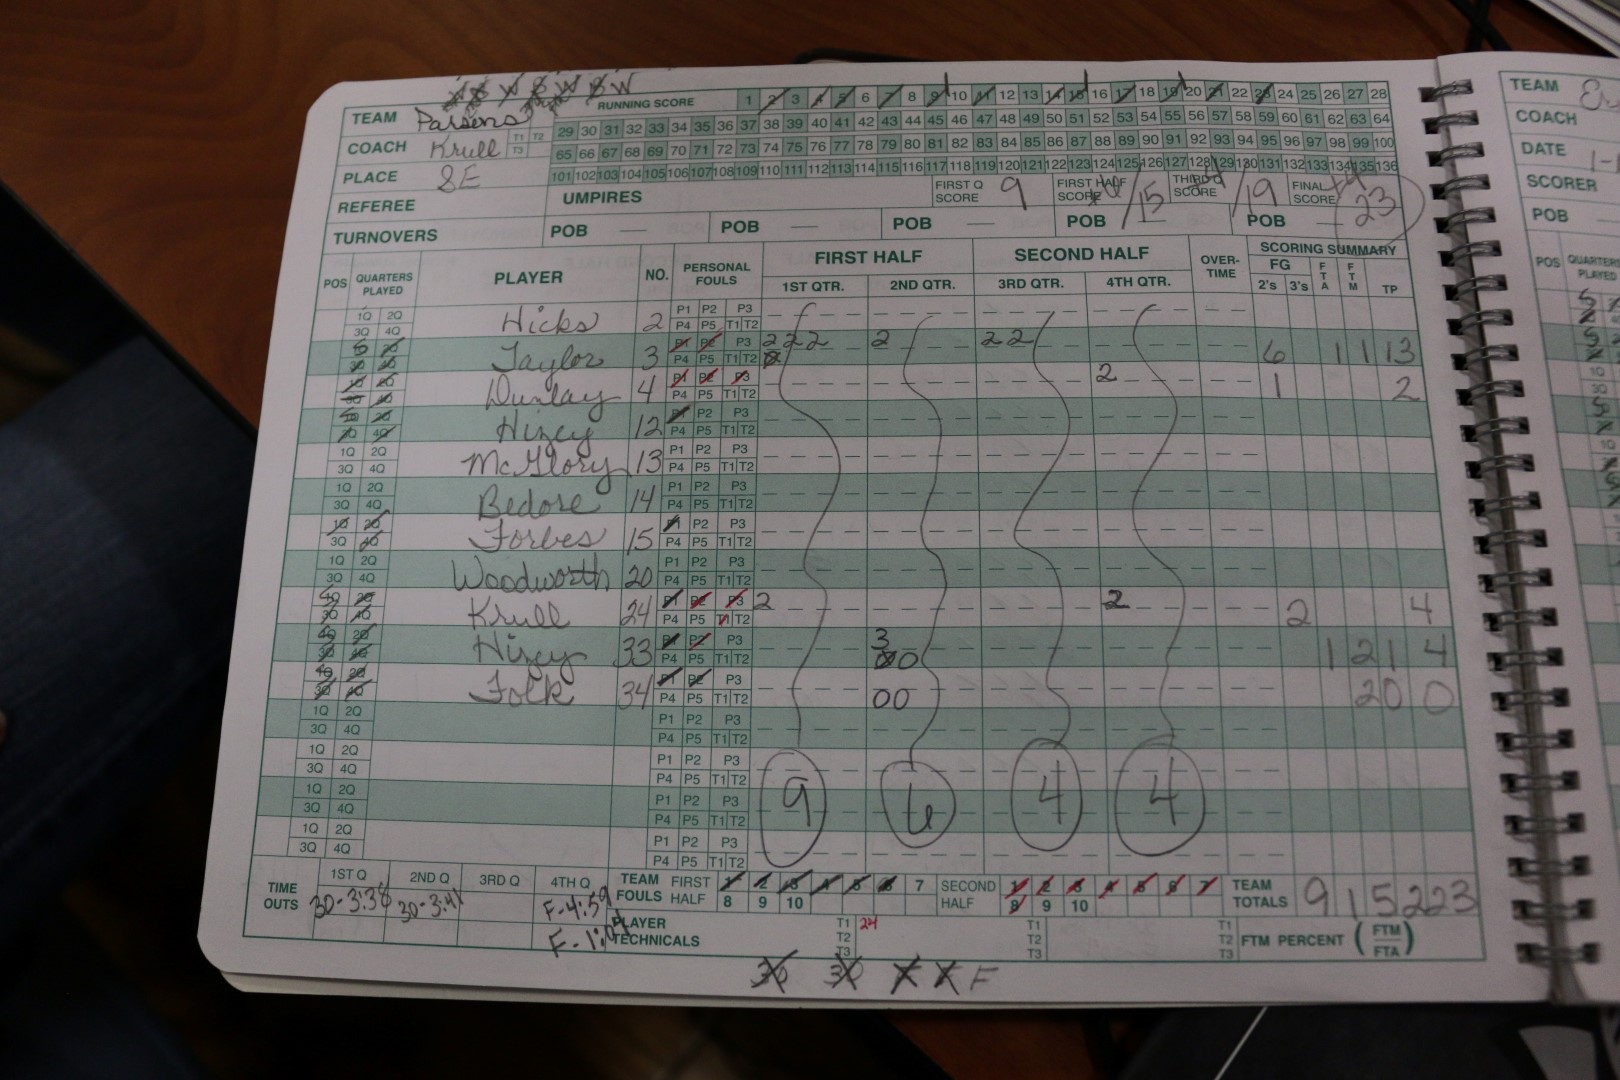 TEAM Parsons RUNNING SCORE 1 2 3 4 5 6 7 8 9 10 11 12 13 14 15 16 17 18 19 20 21 22 23 24 25 26 27 28
COACH Krull T1 T2 T3 29 30 31 32 33 34 35 36 37 38 39 40 41 42 43 44 45 46 47 48 49 50 51 52 53 54 55 56 57 58 59 60 61 62 63 64
65 66 67 68 69 70 71 72 73 74 75 76 77 78 79 80 81 82 83 84 85 86 87 88 89 90 91 92 93 94 95 96 97 98 99 100
PLACE SE 101 102 103 104 105 106 107 108 109 110 111 112 113 114 115 116 117 118 119 120 121 122 123 124 125 126 127 128 129 130 131 132 133 134 135 136
REFEREE UMPIRES FIRST Q SCORE 9 FIRST HALF SCORE 15 THIRD Q SCORE 19 FINAL SCORE 23
TURNOVERS POB POB POB POB POB
POS QUARTERS PLAYED PLAYER NO. PERSONAL FOULS FIRST HALF SECOND HALF OVER-TIME SCORING SUMMARY
1ST QTR. 2ND QTR. 3RD QTR. 4TH QTR. FG 2's 3's FTA FTM TP
1Q 2Q 3Q 4Q Hicks 2 P1 P2 P3 P4 P5 T1 T2
1Q 2Q 3Q 4Q Taylor 3 P1 P2 P3 P4 P5 T1 T2 2 2 2 2 2 2 6 1 1 13
1Q 2Q 3Q 4Q Dunlay 4 P1 P2 P3 P4 P5 T1 T2 2 1 2
1Q 2Q 3Q 4Q Hizey 12 P1 P2 P3 P4 P5 T1 T2
1Q 2Q 3Q 4Q McGlory 13 P1 P2 P3 P4 P5 T1 T2
1Q 2Q 3Q 4Q Bedore 14 P1 P2 P3 P4 P5 T1 T2
1Q 2Q 3Q 4Q Forbes 15 P1 P2 P3 P4 P5 T1 T2
1Q 2Q 3Q 4Q Woodworth 20 P1 P2 P3 P4 P5 T1 T2
1Q 2Q 3Q 4Q Krull 24 P1 P2 P3 P4 P5 T1 T2 2 2 2 4
1Q 2Q 3Q 4Q Hizey 33 P1 P2 P3 P4 P5 T1 T2 3 0 0 1 2 1 4
1Q 2Q 3Q 4Q Folk 34 P1 P2 P3 P4 P5 T1 T2 0 0 2 0 0
1Q 2Q 3Q 4Q P1 P2 P3 P4 P5 T1 T2
1Q 2Q 3Q 4Q P1 P2 P3 P4 P5 T1 T2
1Q 2Q 3Q 4Q P1 P2 P3 P4 P5 T1 T2 9 6 4 4
1Q 2Q 3Q 4Q P1 P2 P3 P4 P5 T1 T2
TIME OUTS 1ST Q 30-3:38 2ND Q 30-3:41 3RD Q 4TH Q F-4:59 F-1:04
TEAM FOULS FIRST HALF 1 2 3 4 5 6 7 8 9 10 SECOND HALF 1 2 3 4 5 6 7 8 9 10 TEAM TOTALS 9 15 2 23
PLAYER TECHNICALS T1 24 T2 T3 T1 T2 T3 T1 T2 T3 FTM PERCENT ( FTM FTA )
30 30 F
TEAM
COACH
DATE 1-
SCORER
POB
POS QUARTERS PLAYED